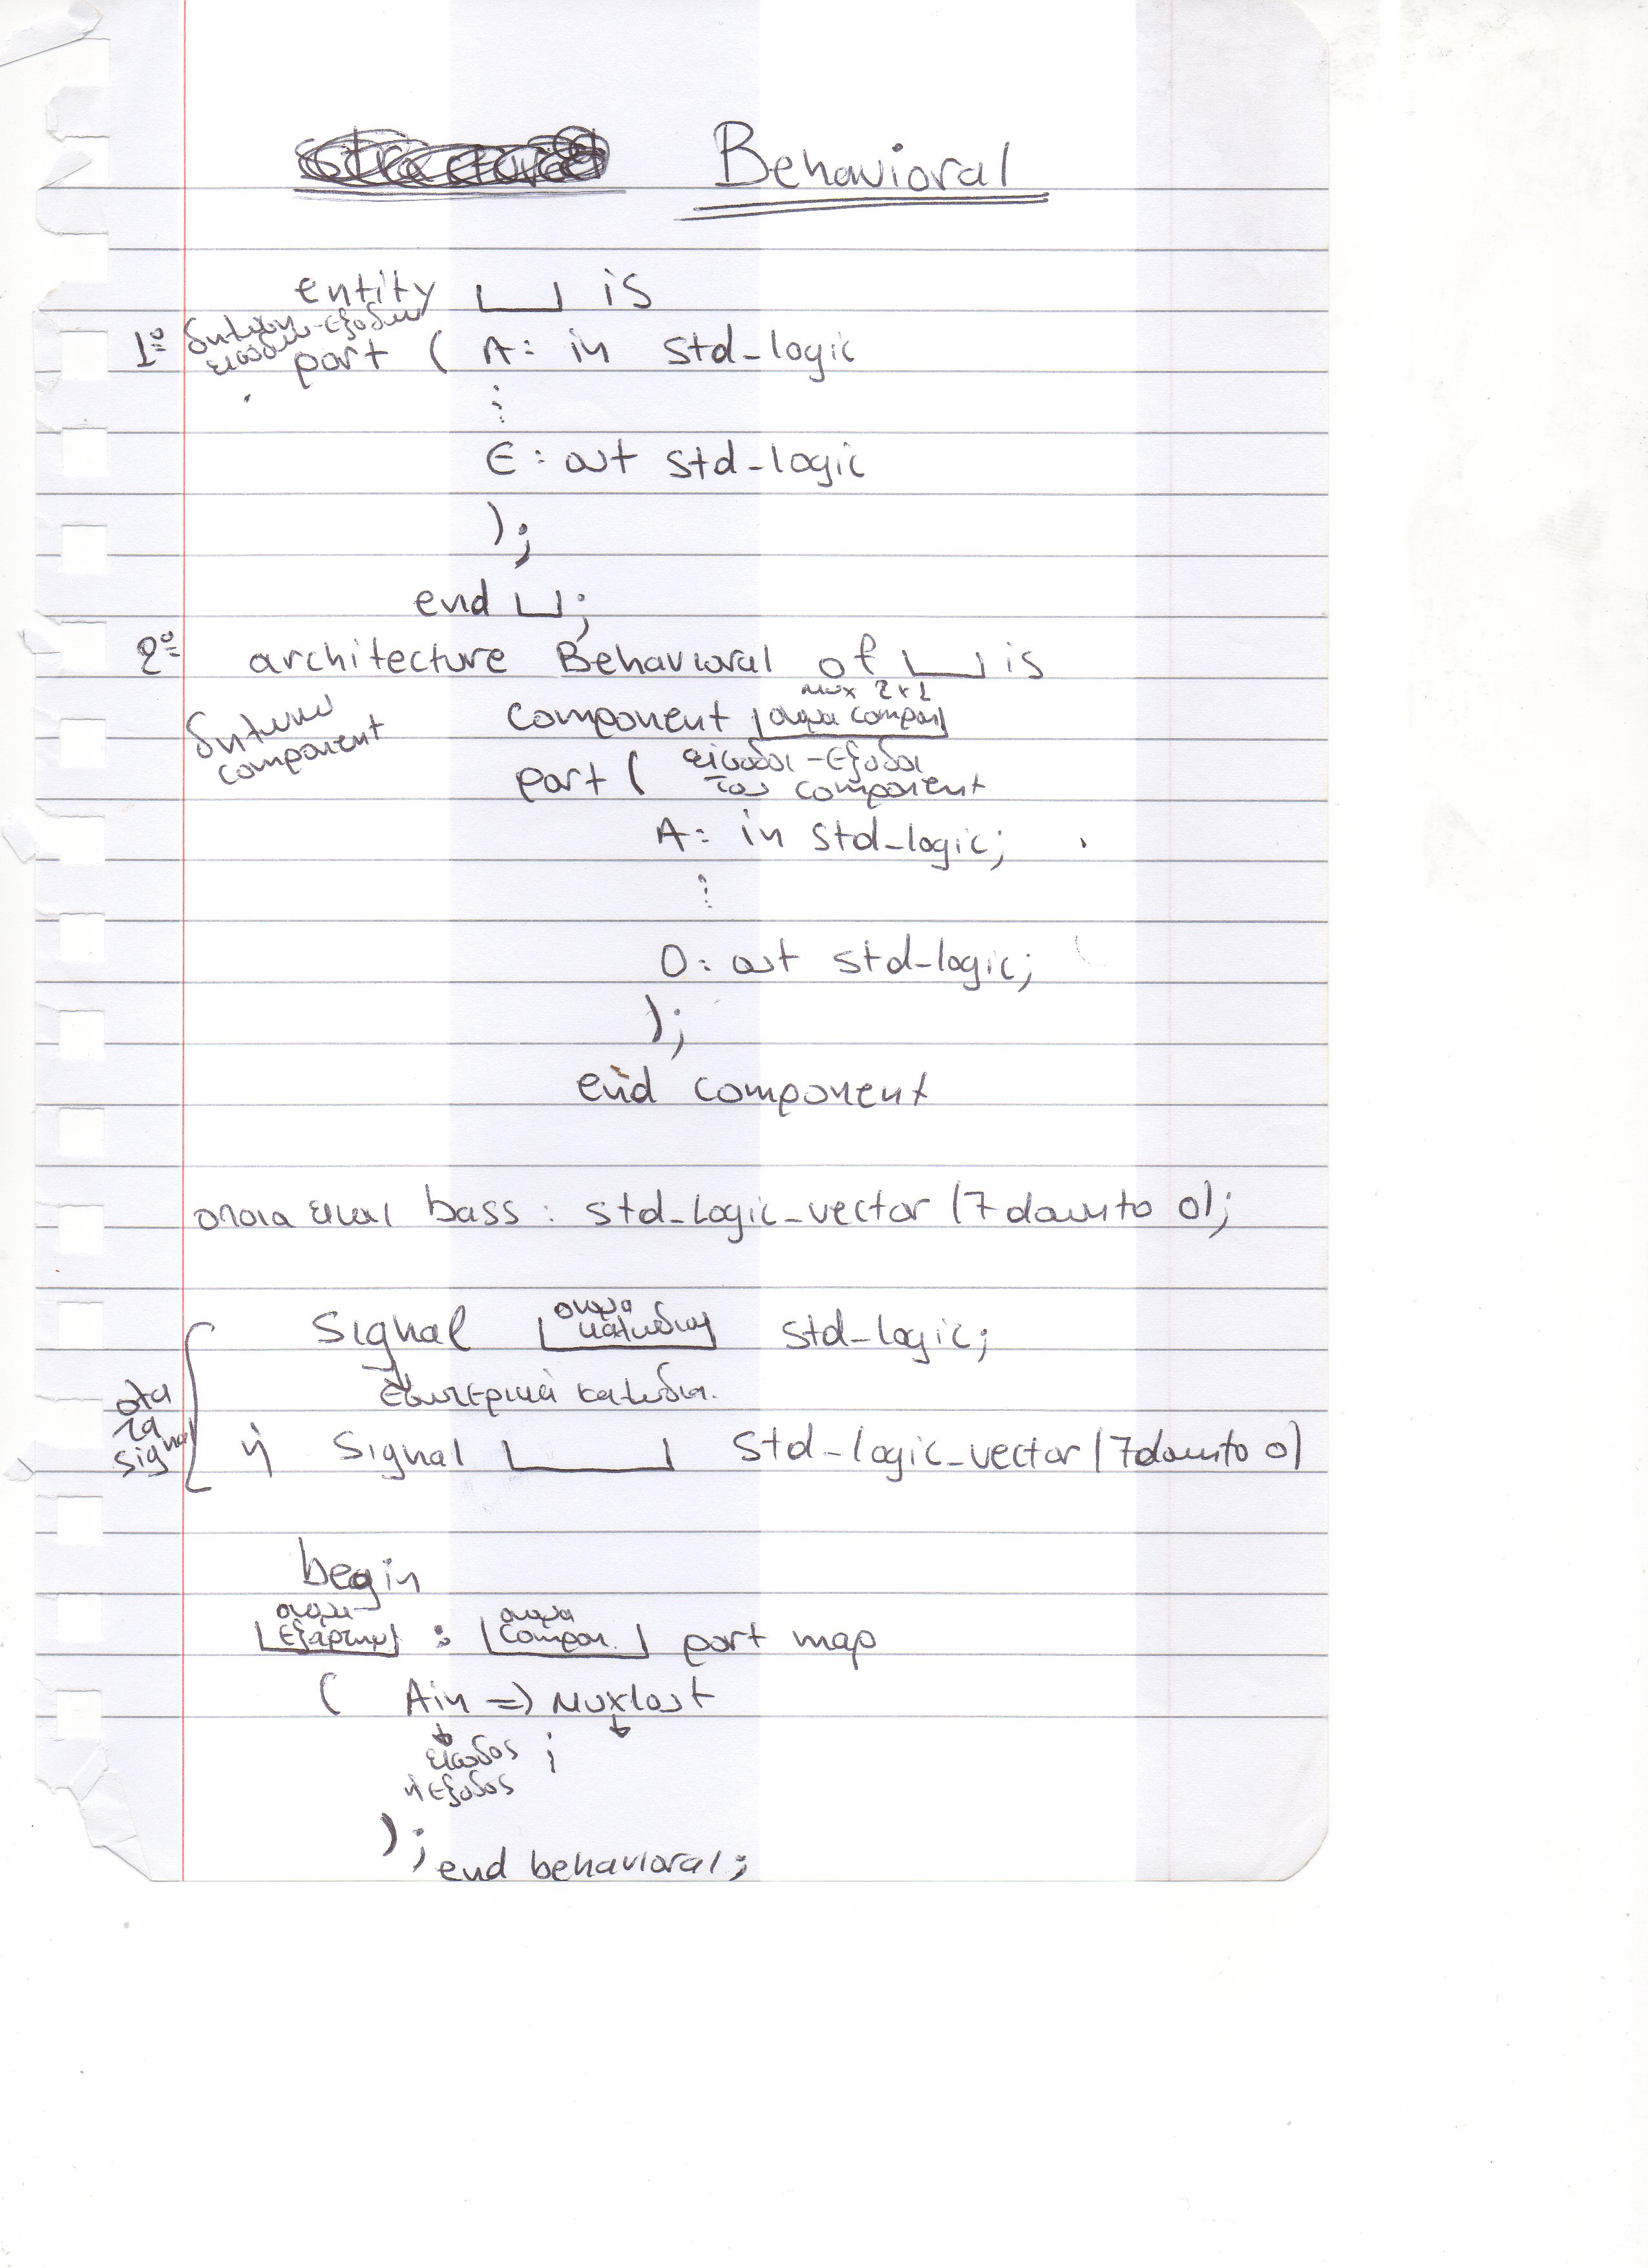 Behavioral
entity is
1º δηλωση
εισοδων-εξοδων
port ( A: in std-logic
⋮
E: out std-logic
);
end ;
2º architecture Behavioral of is
δηλωνω
component
mux 2x1
component ονομα compon
port ( είσοδοι-εξοδοι
του component
A: in std-logic;
⋮
O: out std-logic;
);
end component
οποια ειναι bass: std_logic_vector (7 downto 0);
ολα
τα
signal
Signal ονομα
καλωδιου std-logic;
εσωτερικά καλωδια.
ή Signal std-logic_vector (7 downto 0)
begin
ονομα
εξαρτημ : ονομα
compon. port map
( Ain => mux1out
εισοδος ;
ή εξοδος
);
end behavioral;